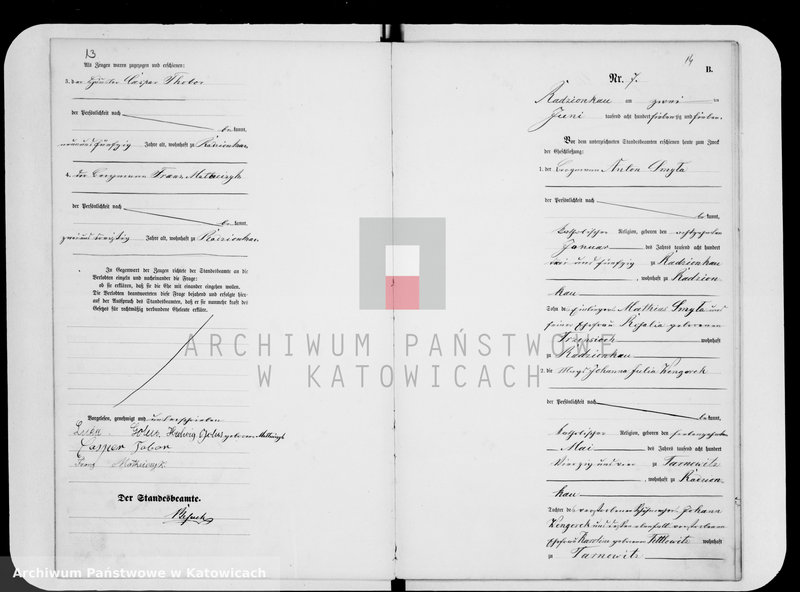 13
Als Zeugen waren zugezogen und erschienen:
3. der Häusler Caspar Thobor
der Persönlichkeit nach
be kannt,
neunundfünfzig Jahre alt, wohnhaft zu Radzionkau
4. der Bergmann Franz Mathuszyk
der Persönlichkeit nach
be kannt,
zweiunddreißig Jahre alt, wohnhaft zu Radzionkau
In Gegenwart der Zeugen richtete der Standesbeamte an die
Verlobten einzeln und nacheinander die Frage:
ob sie erklären, daß sie die Ehe mit einander eingehen wollen.
Die Verlobten beantworteten diese Frage bejahend und erfolgte hier-
auf der Ausspruch des Standesbeamten, daß er sie nunmehr kraft des
Gesetzes für rechtmäßig verbundene Eheleute erkläre.
Vorgelesen, genehmigt und unterschrieben
Hedwig geborene
Casper Tobor
Franz
Der Standesbeamte.
14
B.
Nr. 7.
Radzionkau am zwei ten
Juni tausend acht hundert siebenzig und sieben.
Vor dem unterzeichneten Standesbeamten erschienen heute zum Zweck
der Eheschließung:
1. der Bergmann Anton Smyła
der Persönlichkeit nach
be kannt,
katholischer Religion, geboren den achtzehnten
Januar des Jahres tausend acht hundert
und fünfzig zu Radzionkau
, wohnhaft zu Radzion-
kau
Sohn des Einliegers Mathias Smyła und
seiner Ehefrau Rosalia geborenen
wohnhaft
zu Radzionkau
2. die Magd Johanna Julia Kongorek
der Persönlichkeit nach
be kannt,
katholischer Religion, geboren den siebenzehnten
Mai des Jahres tausend acht hundert
vierzig und vier zu Tarnowitz
, wohnhaft zu Radzion-
kau
Tochter des verstorbenen Johann
Kongorek und dessen ebenfalls verstorbenen
Ehefrau Karolina geborenen wohnhaft
zu Tarnowitz
ARCHIWUM PAŃSTWOWE
W KATOWICACH
Archiwum Państwowe w Katowicach